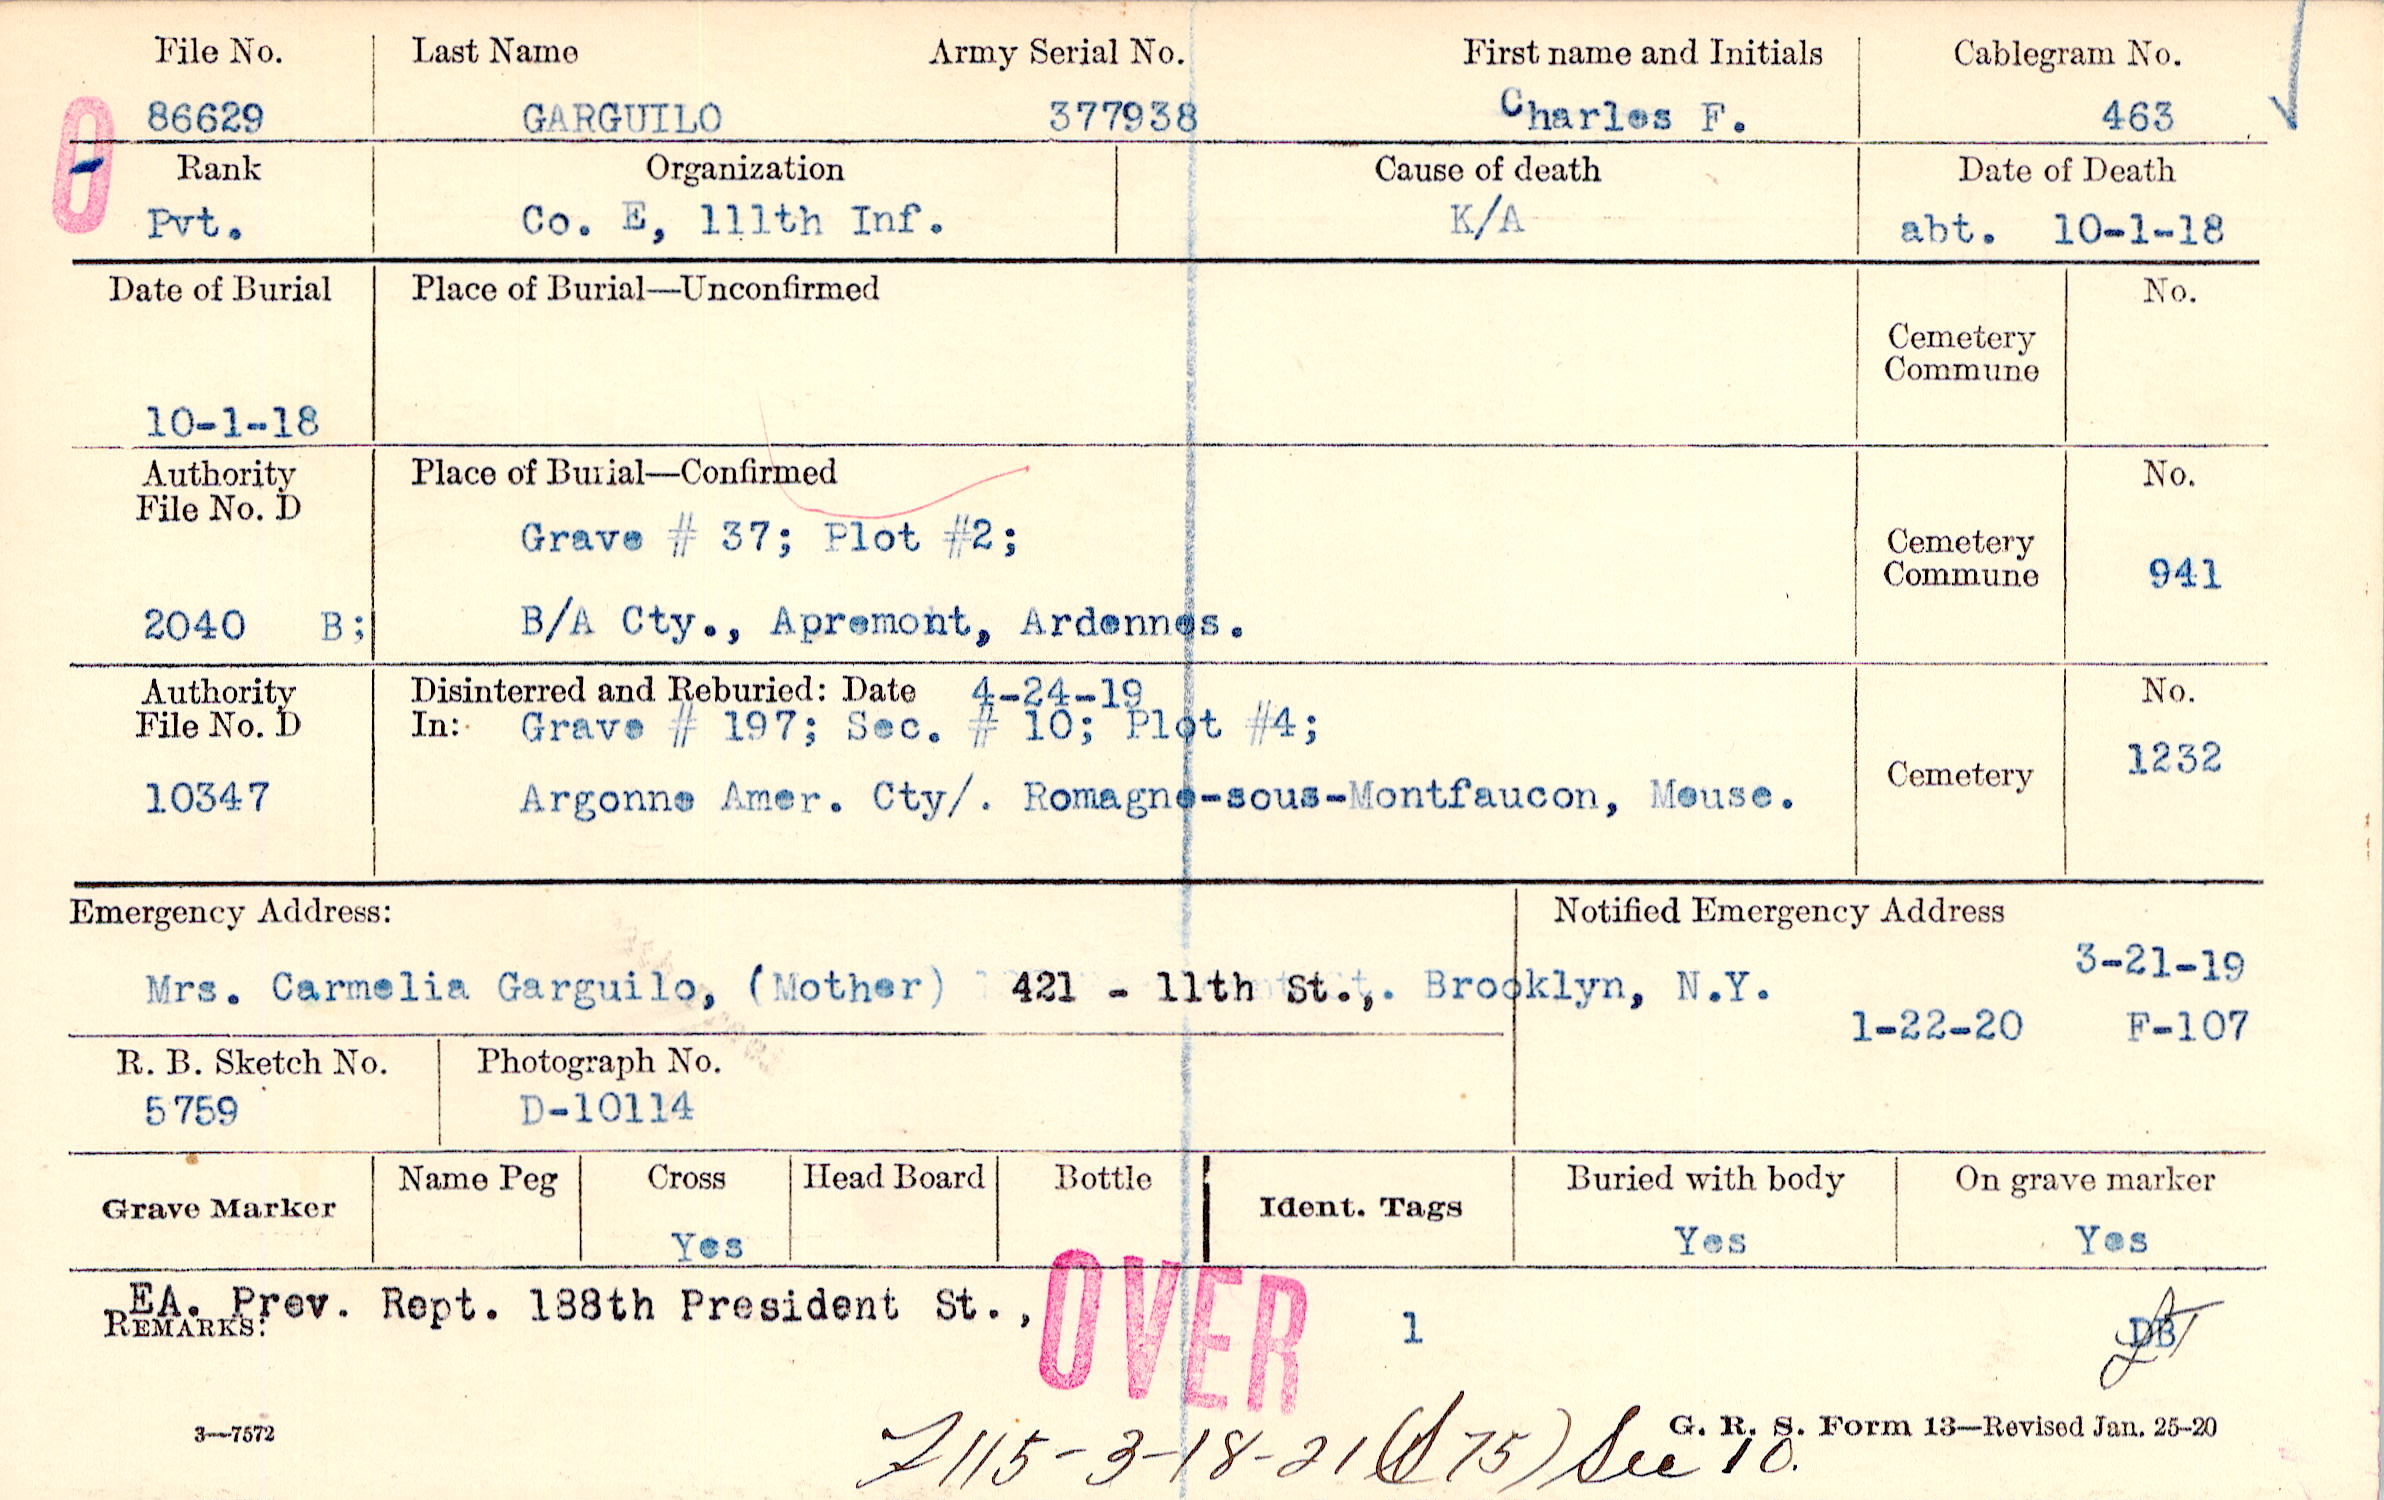 File No. Last Name Army Serial No. First name and Initials Cablegram No.
86629 GARGUILO 377938 Charles F. 463
Rank Organization Cause of death Date of Death
Pvt. Co. E, 111th Inf. K/A abt. 10-1-18
Date of Burial Place of Burial—Unconfirmed No.
Cemetery
Commune
10-1-18
Authority Place of Burial—Confirmed No.
File No. D
Grave # 37; Plot #2;
Cemetery
Commune 941
2040 B; B/A Cty., Apremont, Ardennes.
Authority Disinterred and Reburied: Date 4-24-19 No.
File No. D In: Grave # 197; Sec. # 10; Plot #4;
1232
Cemetery
10347 Argonne Amer. Cty/. Romagne-sous-Montfaucon, Meuse.
Emergency Address: Notified Emergency Address
3-21-19
Mrs. Carmelia Garguilo, (Mother) 421 - 11th St.,. Brooklyn, N.Y.
1-22-20 F-107
R. B. Sketch No. Photograph No.
5759 D-10114
Grave Marker Name Peg Cross Head Board Bottle Ident. Tags Buried with body On grave marker
Yes Yes Yes
EA. Prev. Rept. 188th President St.,
REMARKS: OVER 1 DB
3—7572 G. R. S. Form 13—Revised Jan. 25-20
115-3-18-21 ( 75) See 10.